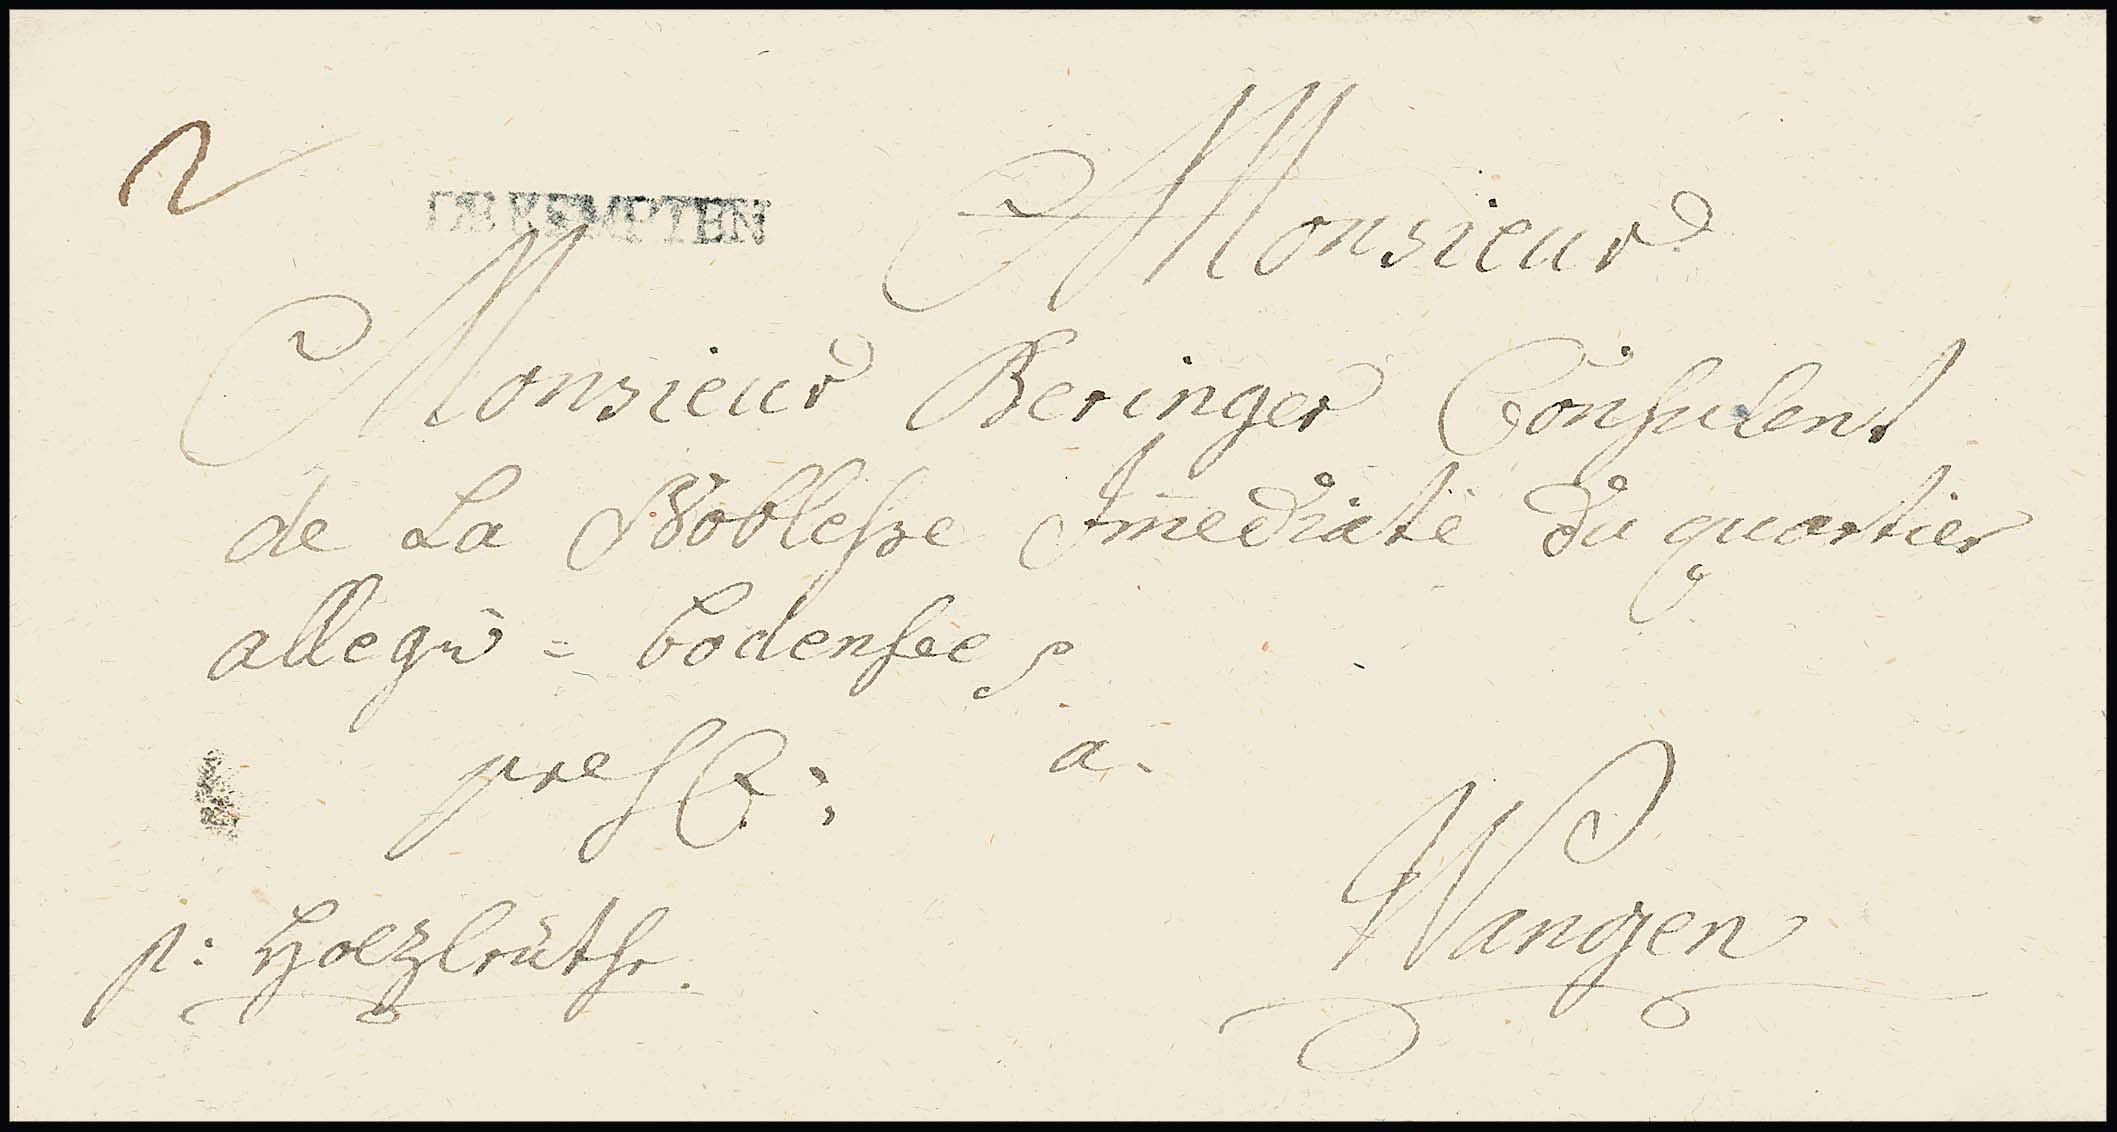 2
DE KEMPTEN
Monsieur
Monsieur Beringer Consulent
de La Noblesse Im̄ediate du quartier
allegù = bodensee
a.
Wangen
p: